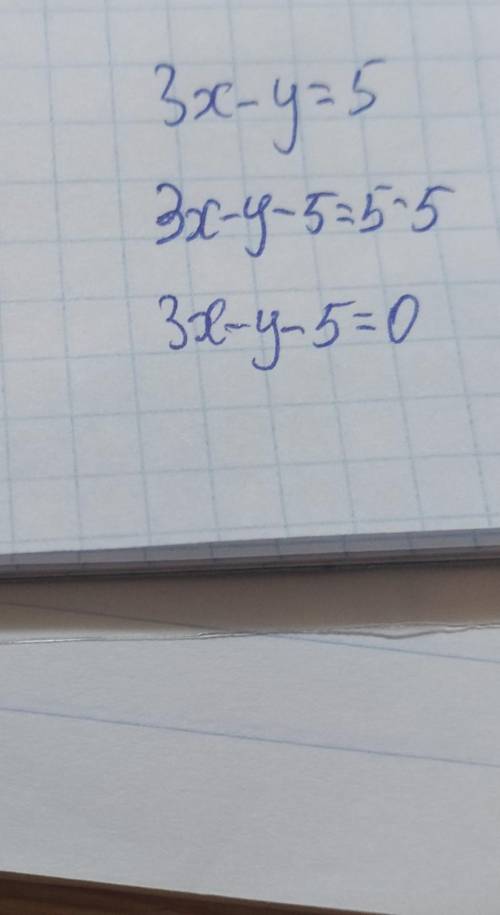 3x-y=5
3x-y-5=5-5
3x-y-5=0